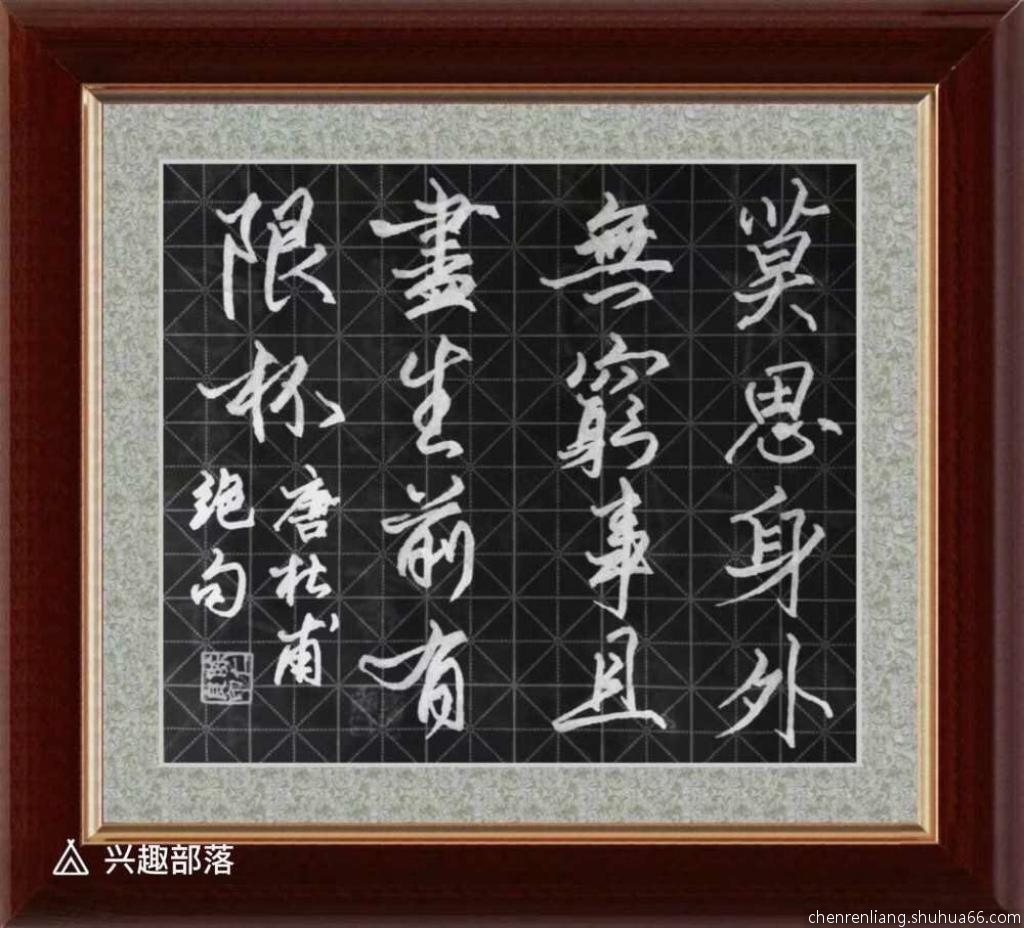 莫思身外
無窮事且
盡生前有
限杯
唐杜甫
絶句
兴趣部落
chenrenliang.shuhua66.com